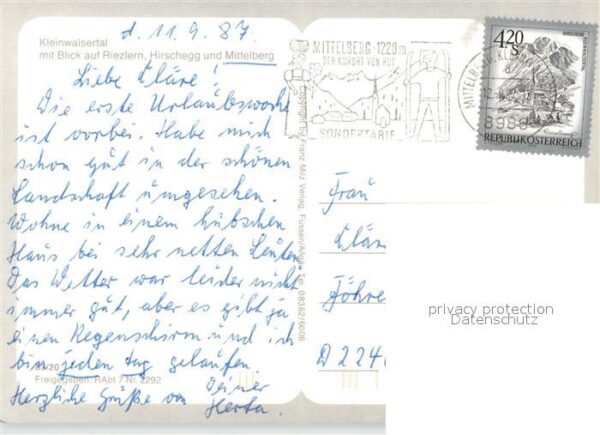 d. 11.9.87.
Kleinwalsertal
mit Blick auf Riezlern, Hirschegg und Mittelberg
Liebe Cläre!
Die erste Urlaubswoche
ist vorbei. Habe mich
schon gut in der schönen
Landschaft umgesehen.
Wohne in einem hübschen
Haus bei sehr netten Leuten.
Das Wetter war leider nicht
immer gut, aber es gibt ja
einen Regenschirm und ich
bin jeden Tag gelaufen.
Freigegeben: RAbt 7 Nr. 2292
Herzliche Grüße von Deiner
Herta.
Franz Milz Verlag, Füssen/Allgäu Tel. 08362/6008
MITTELBERG · 1220 m
DER KURORT VON RUF
SONDERTARIF
8986
4.20
S
REPUBLIK ÖSTERREICH
Frau
Clär
Föhre
D 224
privacy protection
Datenschutz